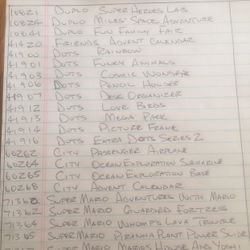 10821 DUPLO SUPER HEROES LAB
10824 DUPLO MILES' SPACE ADVENTURE
10841 DUPLO FUN FAMILY FAIR
41420 FRIENDS ADVENT CALENDAR
41902 DOTS RAINBOW
41901 DOTS FUNKY ANIMALS
41903 DOTS COSMIC WONDER
41906 DOTS PENCIL HOLDER
41907 DOTS DESK ORGANIZER
41912 DOTS LOVE BIRDS
41913 DOTS MEGA PACK
41914 DOTS PICTURE FRAME
41916 DOTS EXTRA DOTS SERIES 2
60262 CITY PASSENGER AIRPLANE
60264 CITY OCEAN EXPLORATION SUBMARINE
60265 CITY OCEAN EXPLORATION BASE
60268 CITY ADVENT CALENDAR
71360 SUPER MARIO ADVENTURES WITH MARIO
71362 SUPER MARIO GUARDED FORTRESS
71364 SUPER MARIO WHOMP'S LAVA TROUBLE
71365 SUPER MARIO PIRANHA PLANT POWER SLIDE
SUPER MARIO MARIO'S HOUSE AND YOSHI